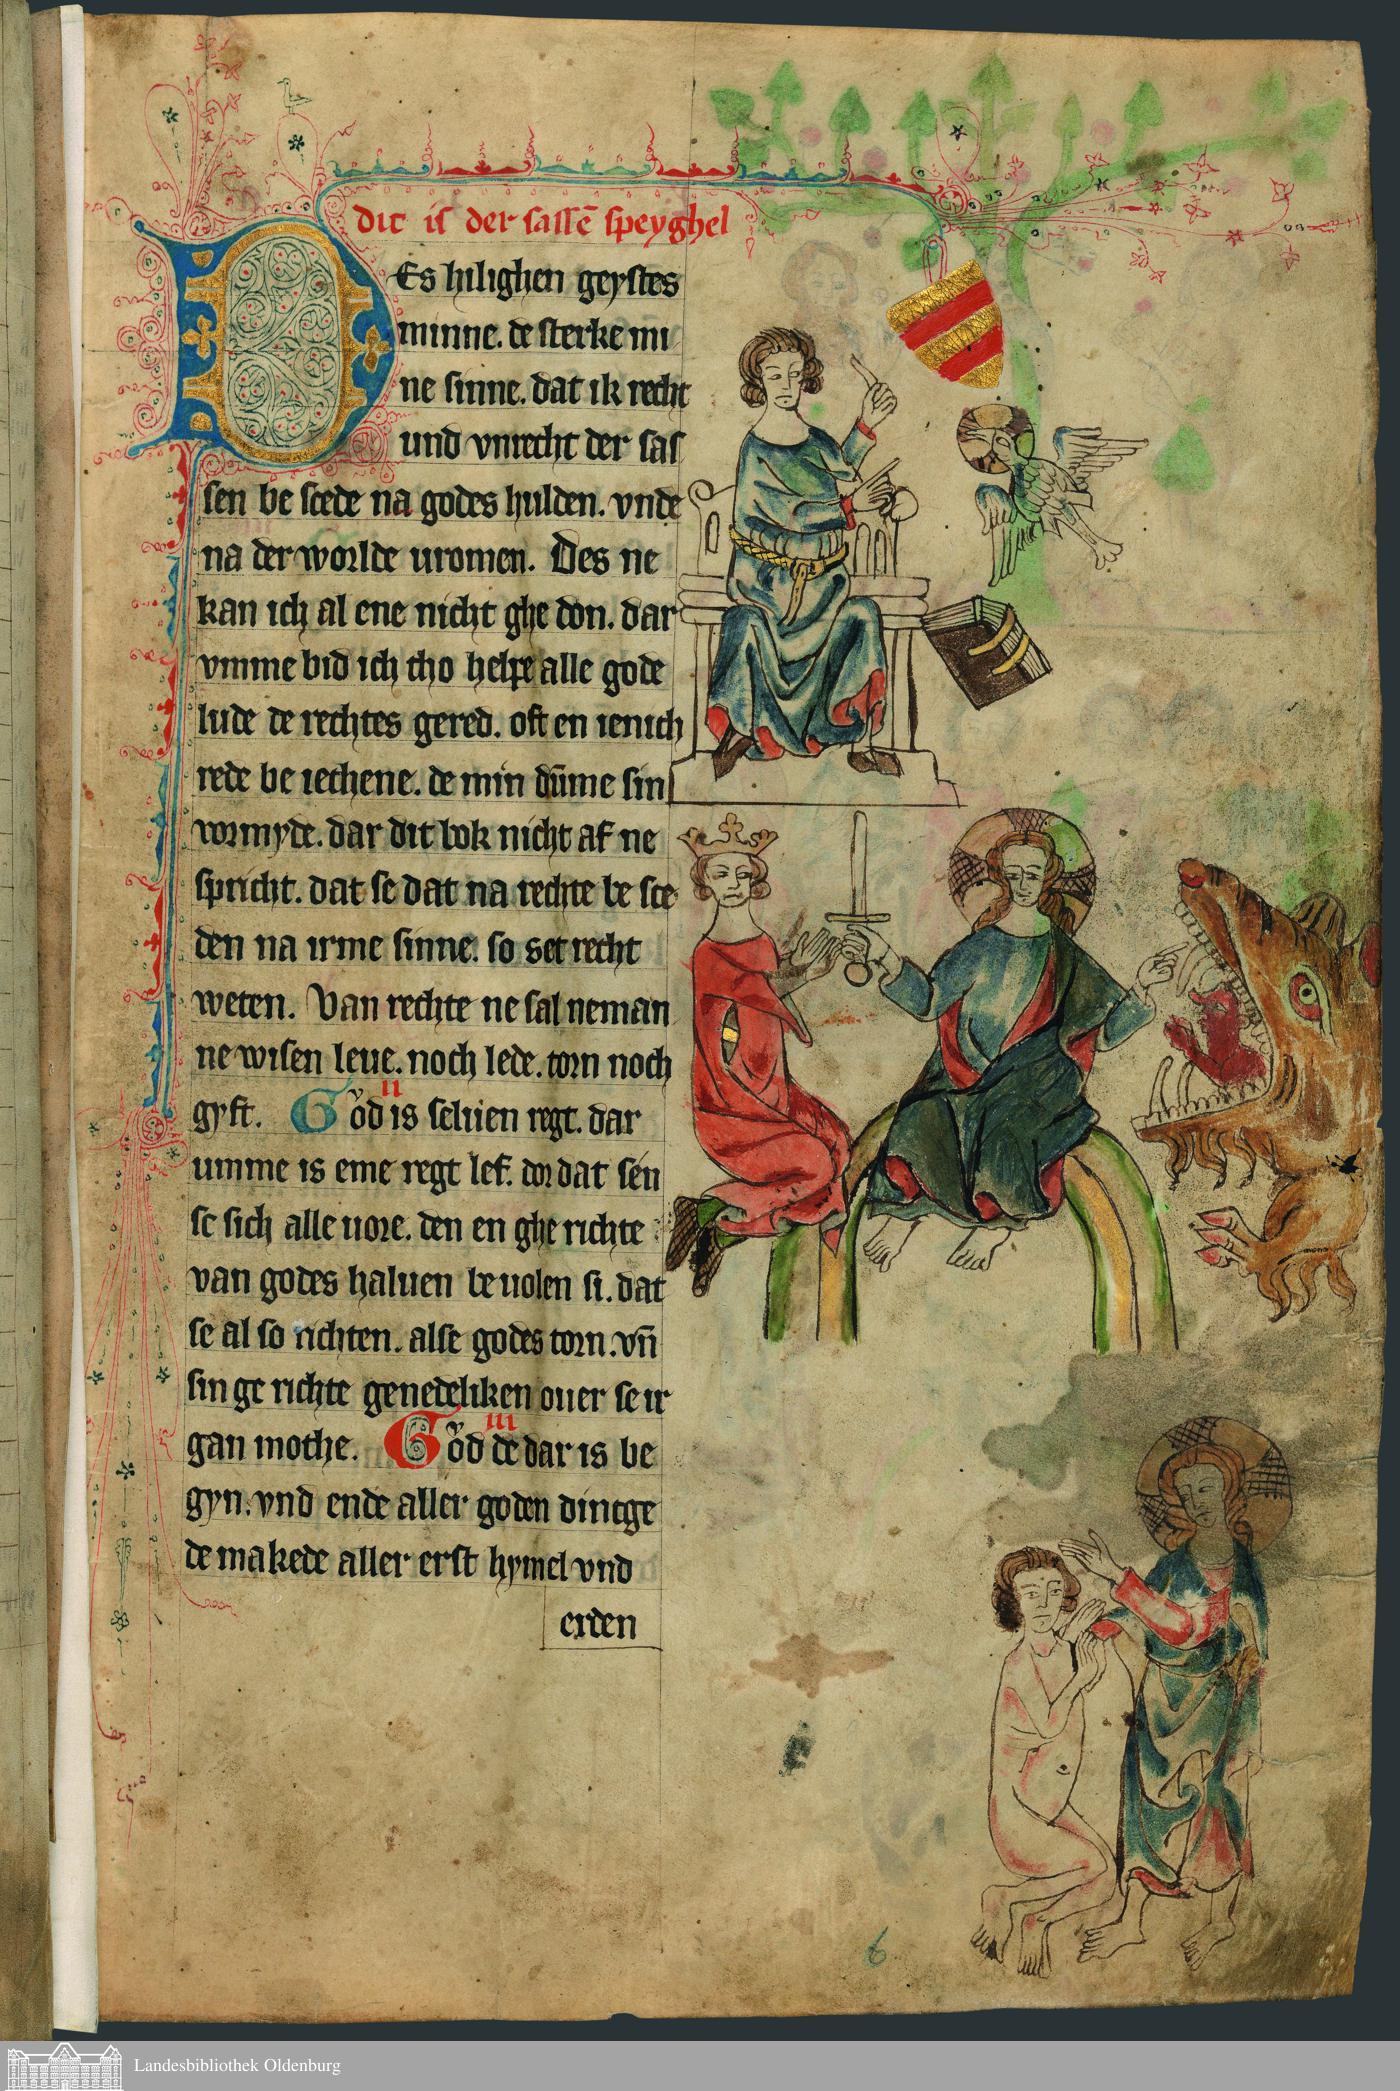 dit is der sassē speyghel
DEs hilighen geystes
minne. de sterke mi
ne sinne. dat ik recht
und vnrecht der sas
sen be scede na godes hulden. vnde
na der worlde uromen. Des ne
kan ich al ene nicht ghe don. dar
vmme bid ich tho helpe alle gode
lude de rechtes gered. oft en ienich
rede be iechene. de min dūme sin
vormyde. dar dit bok nicht af ne
spricht. dat se dat na rechte be sce
den na irme sinne. so set recht
weten. Van rechte ne sal neman
ne wisen leue. noch lede. torn noch
gyft. God is seluen regt. dar
II
umme is eme regt lef. dor dat sen
se sich alle uore. den en ghe richte
van godes haluen be uolen si. dat
se al so richten. alse godes torn. vn̄
sin ge richte genedeliken ouer se ir
gan mothe. God de dar is be
III
gyn. vnd ende aller goden dintge
de makede aller erst hymel vnd
erden
6
Landesbibliothek Oldenburg